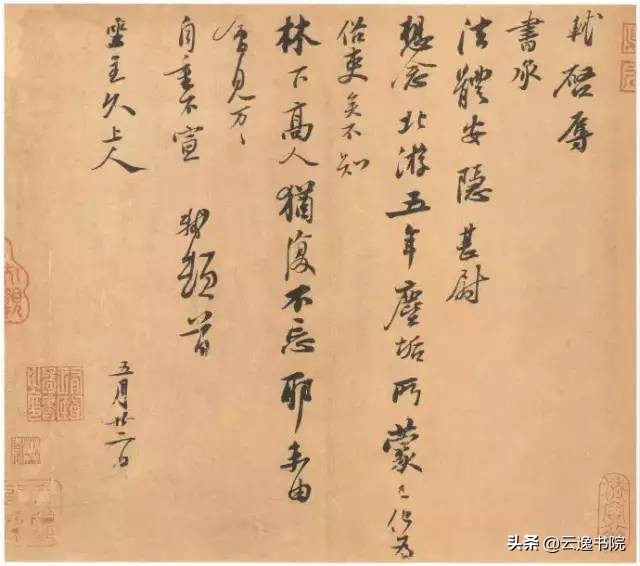 軾啓辱
書承
法體安隱甚尉
想念北游五年塵垢所蒙已化為
俗吏矣不知
林下高人猶復不忘耶未由
會見万〻
自重不宣 軾頓首
坐主久上人
五月廿二日
头条 @云逸书院